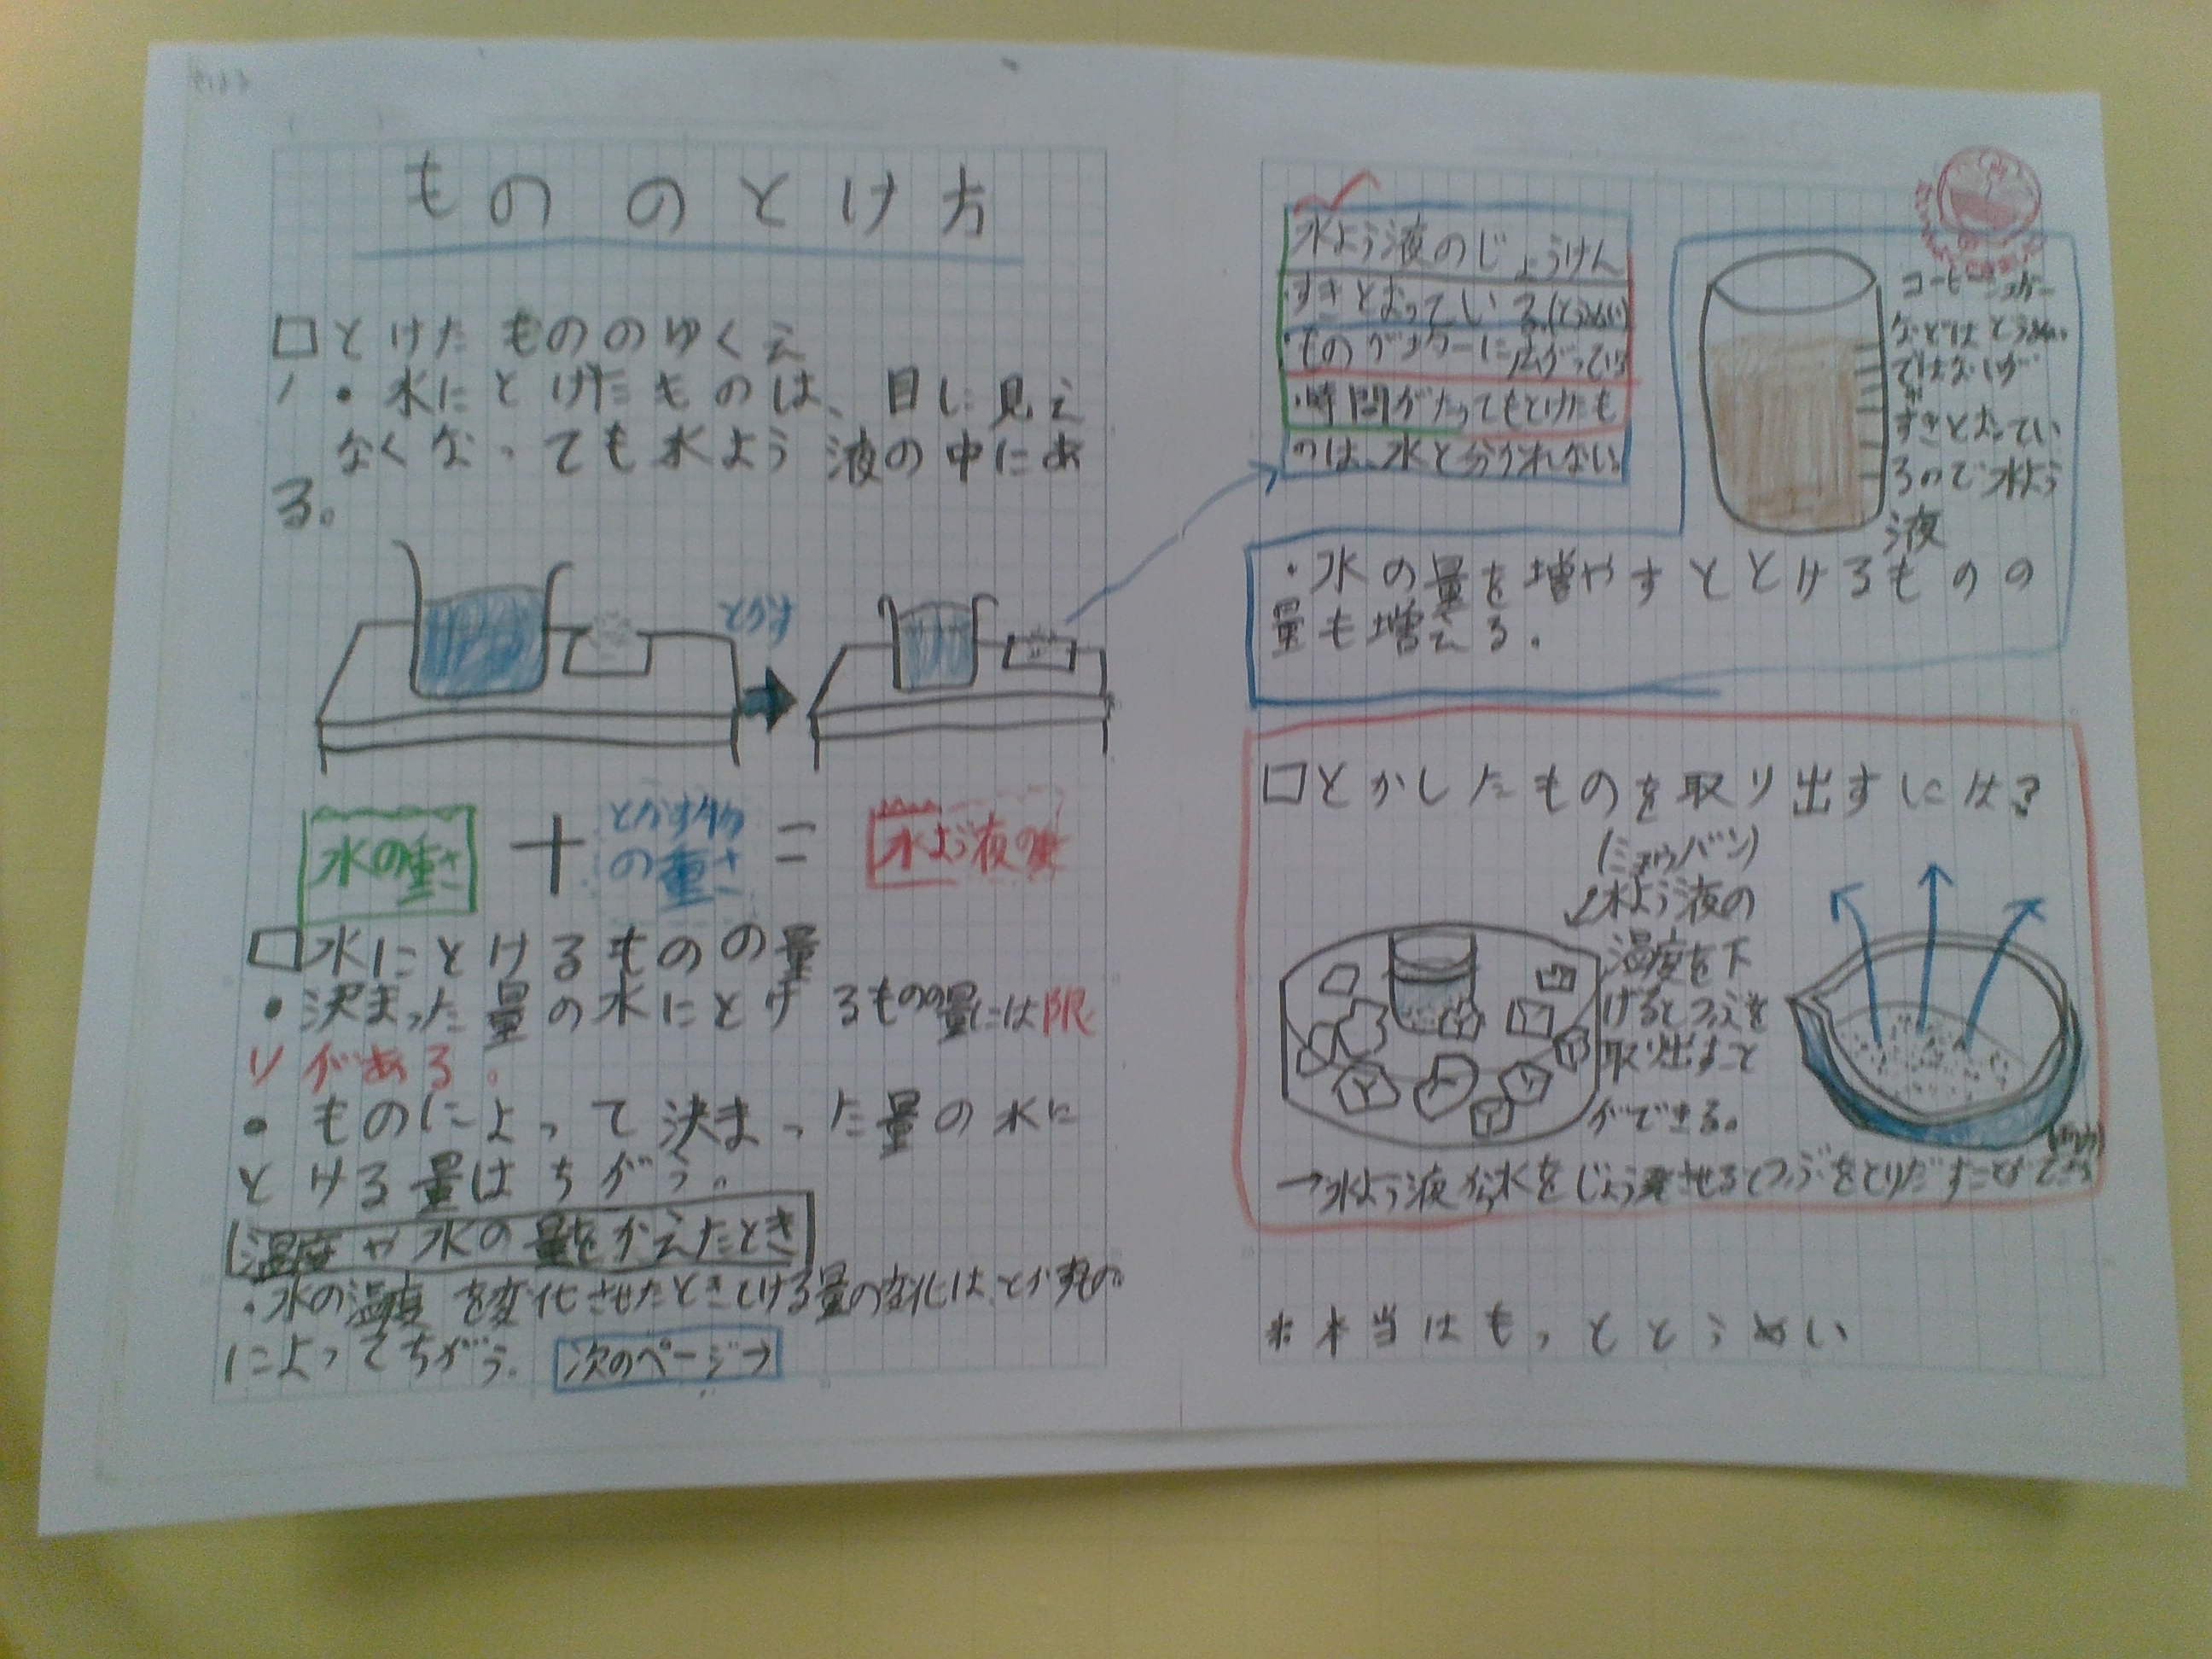 もののとけ方
□とけたもののゆくえ
・水にとけたものは、目に見え
なくなっても水よう液の中にあ
る。
とかす
水の重さ
+
とかす物
の重さ
=
水よう液の重さ
□水にとけるものの量
・決まった量の水にとけるものの量には限
りがある。
・ものによって決まった量の水に
とける量はちがう。
温度や水の量をかえたとき
・水の温度を変化させたときとける量の変化は、とかすもの
によってちがう。
次のページ→
水よう液のじょうけん
・すきとおっている(とうめい)
・ものが全体に広がっている
・時間がたってもとけたも
のは、水と分かれない。
コーヒーシュガー
などはとうめい
ではないが
すきとおってい
るので水よう
液
・水の量を増やすととけるものの
量も増える。
□とかしたものを取り出すには?
(ミョウバン)
↙水よう液の
温度を下
げるとつぶを
取り出すこと
ができる。
→水よう液から水をじょう発させるとつぶをとりだすことができる
※本当はもっととうめい